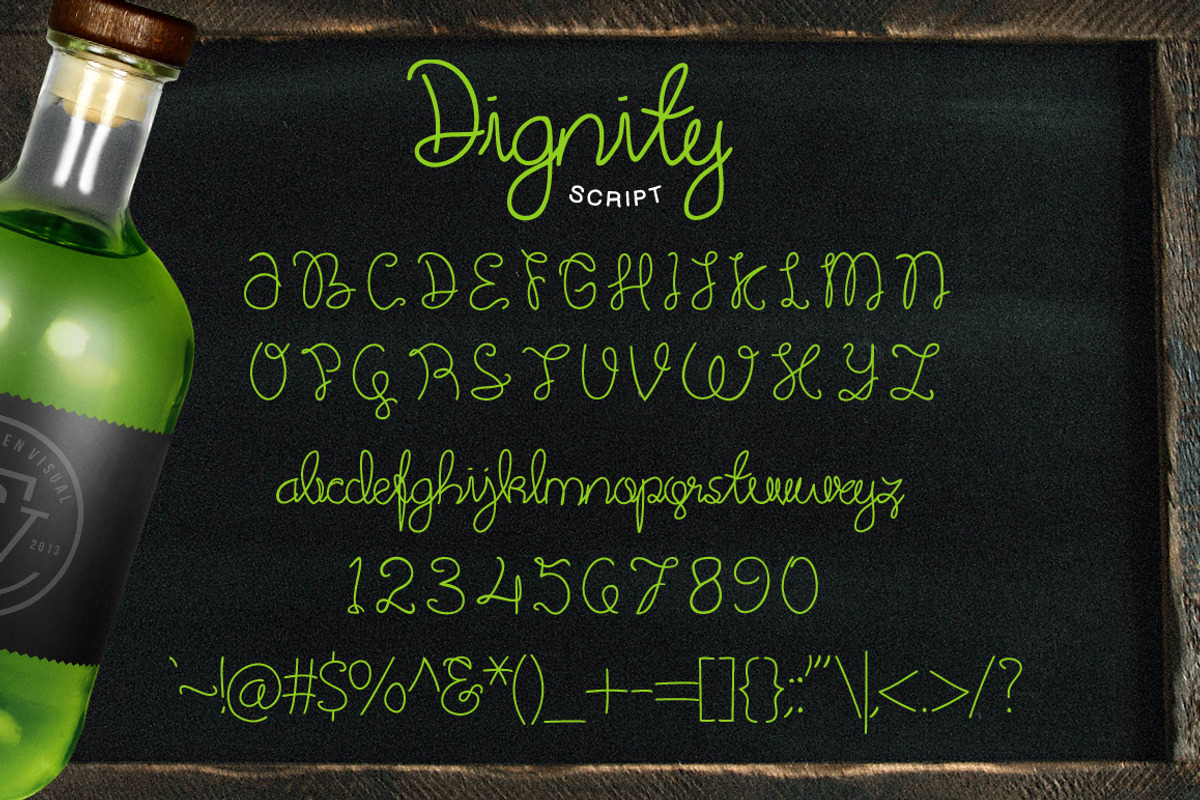 Dignity
SCRIPT
ABCDEFGHIJKLMN
OPQRSTUVWXYZ
abcdefghijklmnopqrstuvwxyz
1234567890
`~!@#$%^&*()_+-=[]{};:'"\|,<.>/?
VISUAL
2013